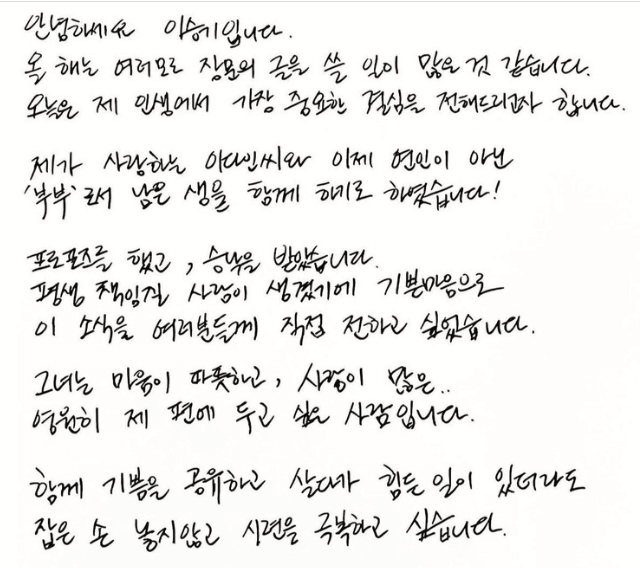 안녕하세요 이승기입니다.
올 해는 여러모로 장문의 글을 쓸 일이 많은 것 같습니다.
오늘은 제 인생에서 가장 중요한 결심을 전해드리고자 합니다.
제가 사랑하는 이다인씨와 이제 연인이 아닌
'부부'로서 남은 생을 함께 하기로 하였습니다!
프로포즈를 했고, 승낙을 받았습니다.
평생 책임질 사람이 생겼기에 기쁜마음으로
이 소식을 여러분들께 직접 전하고 싶었습니다.
그녀는 마음이 따뜻하고, 사랑이 많은..
영원히 제 편에 두고 싶은 사람입니다.
함께 기쁨을 공유하고 살다가 힘든 일이 있더라도
잡은 손 놓지않고 시련을 극복하고 싶습니다.